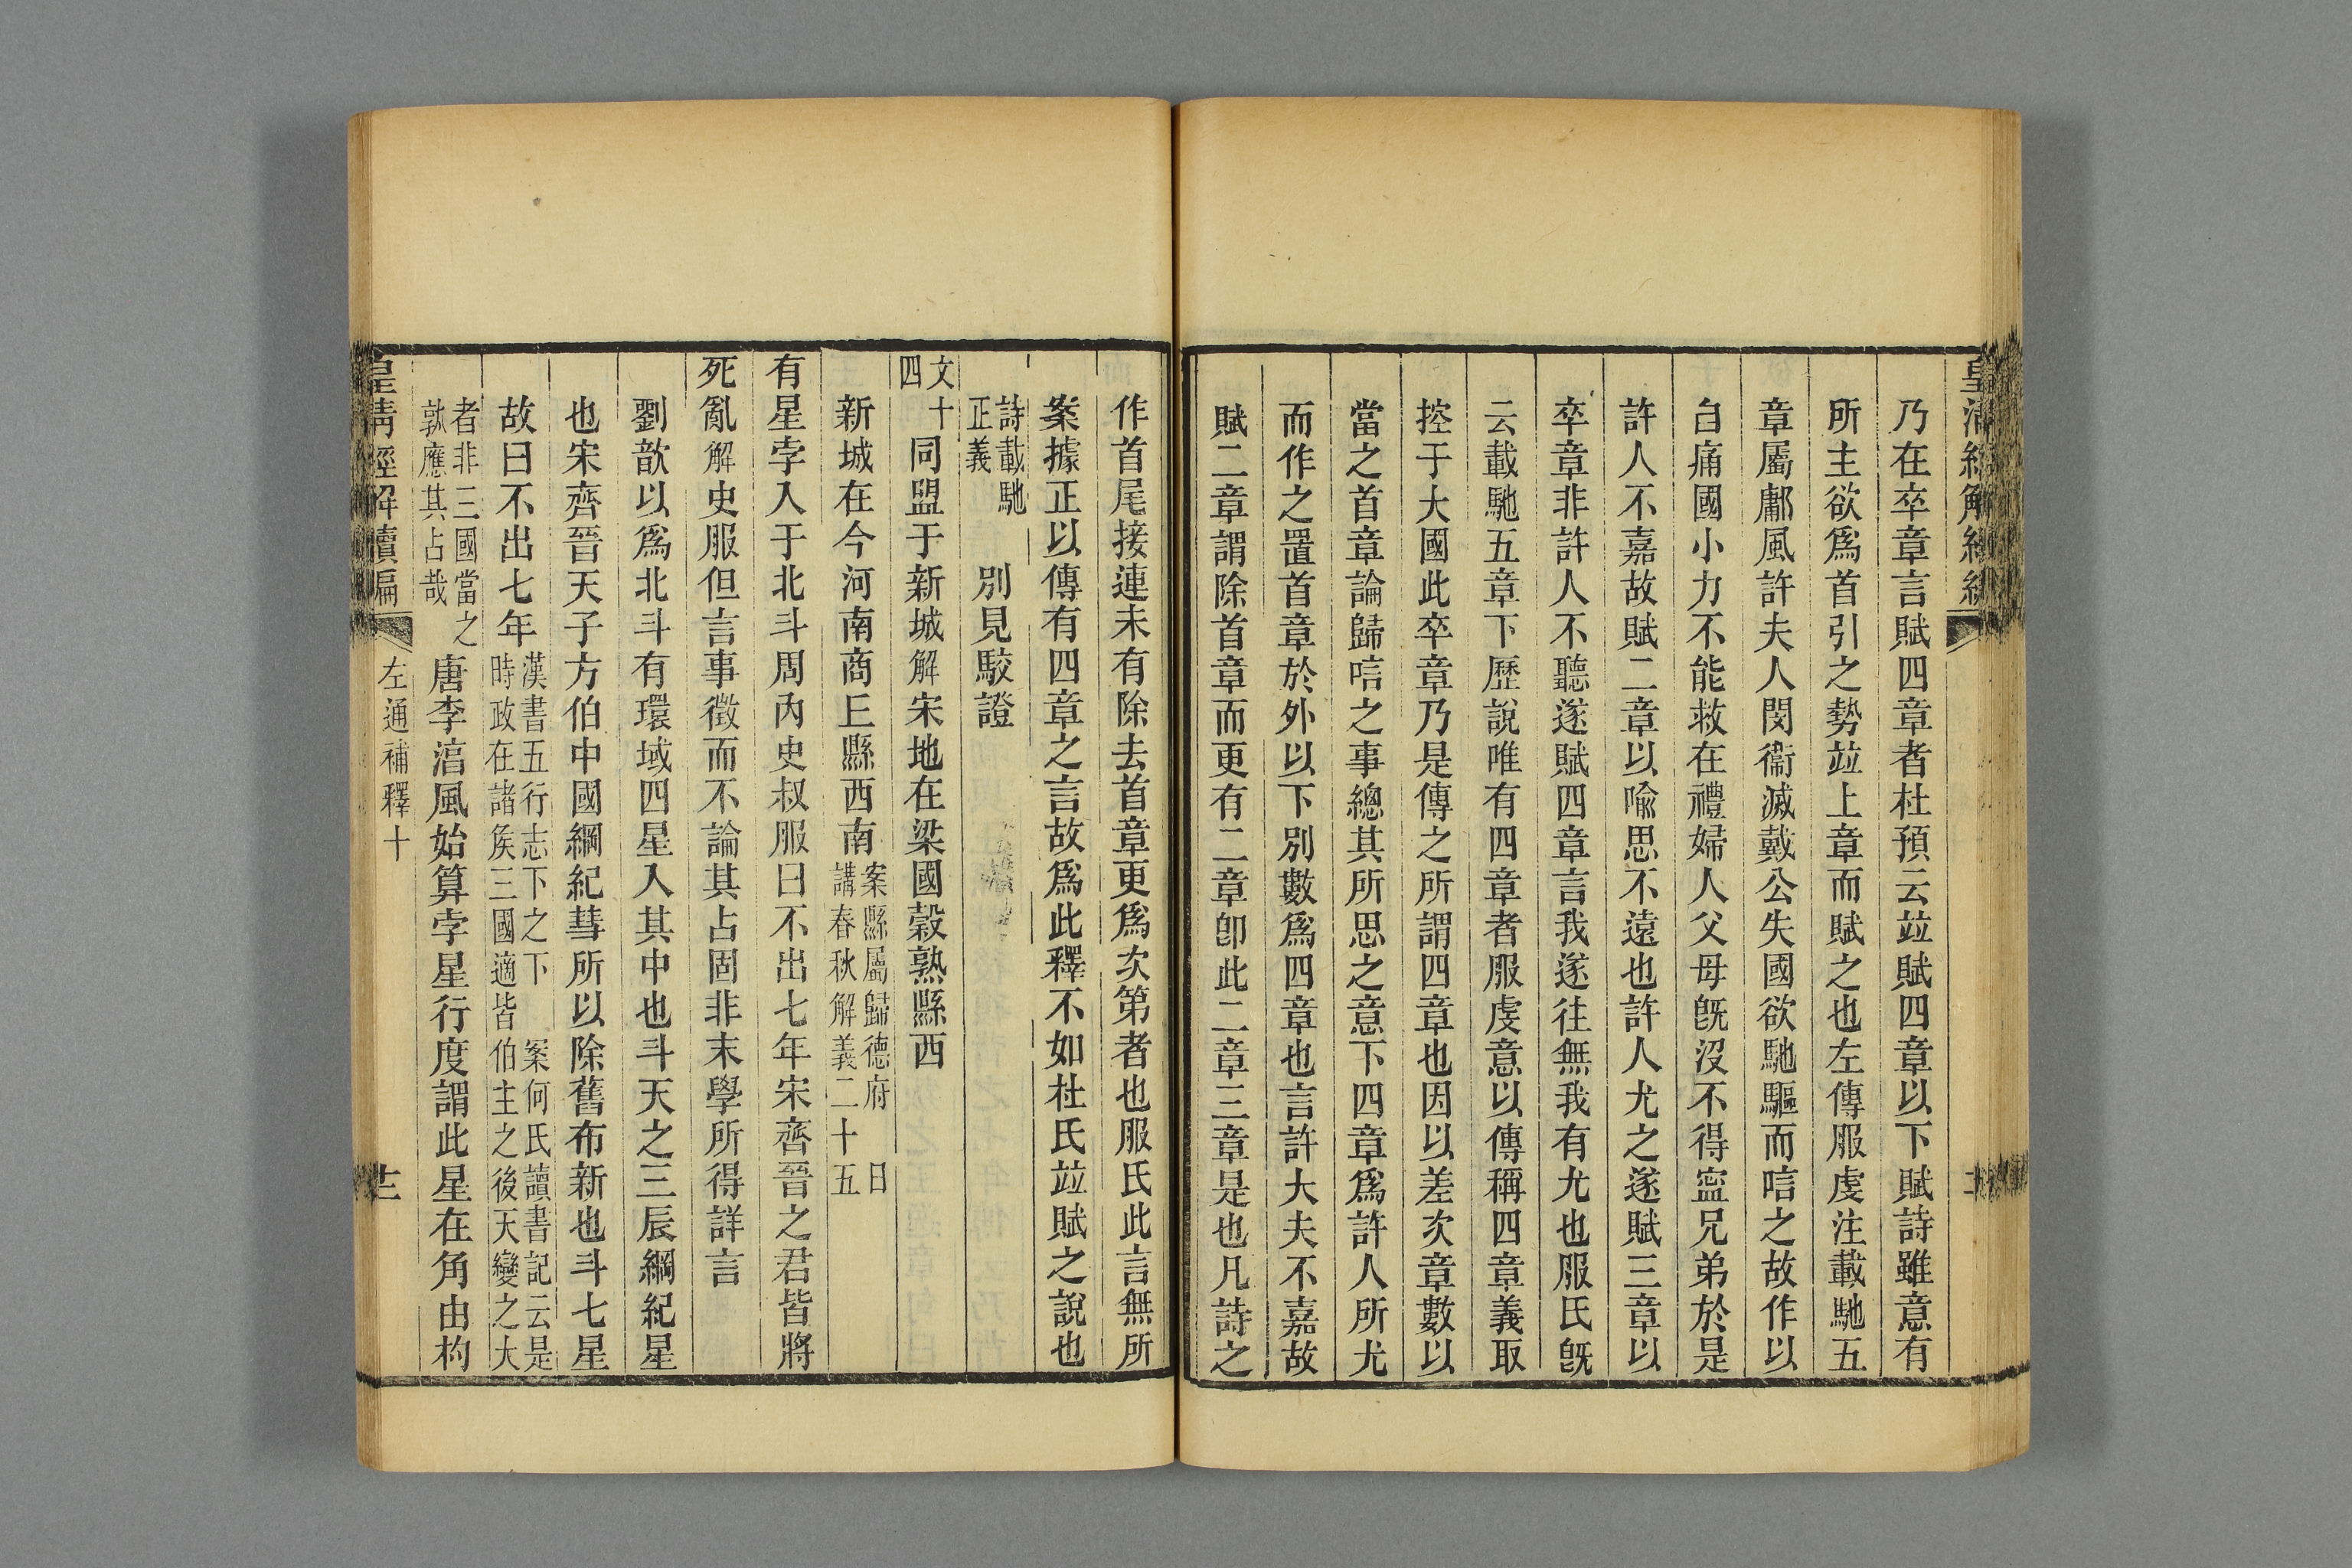 乃在卒章言賦四章者杜預云竝賦四章以下賦詩雖意有
所主欲爲首引之勢竝上章而賦之也左傳服虔注載馳五
章屬鄘風許夫人閔衞滅戴公失國欲馳驅而唁之故作以
自痛國小力不能救在禮婦人父母旣沒不得寧兄弟於是
許人不嘉故賦二章以喩思不遠也許人尤之遂賦三章以
卒章非許人不聽遂賦四章言我遂往無我有尤也服氏旣
云載馳五章下歷說唯有四章者服虔意以傳稱四章義取
控于大國此卒章乃是傳之所謂四章也因以差次章數以
當之首章論歸唁之事總其所思之意下四章爲許人所尤
而作之置首章於外以下別數爲四章也言許大夫不嘉故
賦二章謂除首章而更有二章卽此二章三章是也凡詩之
作首尾接連未有除去首章更爲次第者也服氏此言無所
案據正以傳有四章之言故爲此釋不如杜氏竝賦之說也
詩載馳
正義
別見駮證
文十
四
同盟于新城解宋地在梁國穀熟縣西
新城在今河南商丘縣西南
案縣屬歸德府 日
講春秋解義二十五
有星孛入于北斗周內史叔服曰不出七年宋齊晉之君皆將
死亂解史服但言事徵而不論其占固非末學所得詳言
劉歆以爲北斗有環域四星入其中也斗天之三辰綱紀星
也宋齊晉天子方伯中國綱紀彗所以除舊布新也斗七星
故曰不出七年
漢書五行志下之下 案何氏讀書記云是
時政在諸矦三國適皆伯主之後天變之大
者非三國當之
孰應其占哉
唐李湻風始算孛星行度謂此星在角由杓
皇淸經解續編
左通補釋十